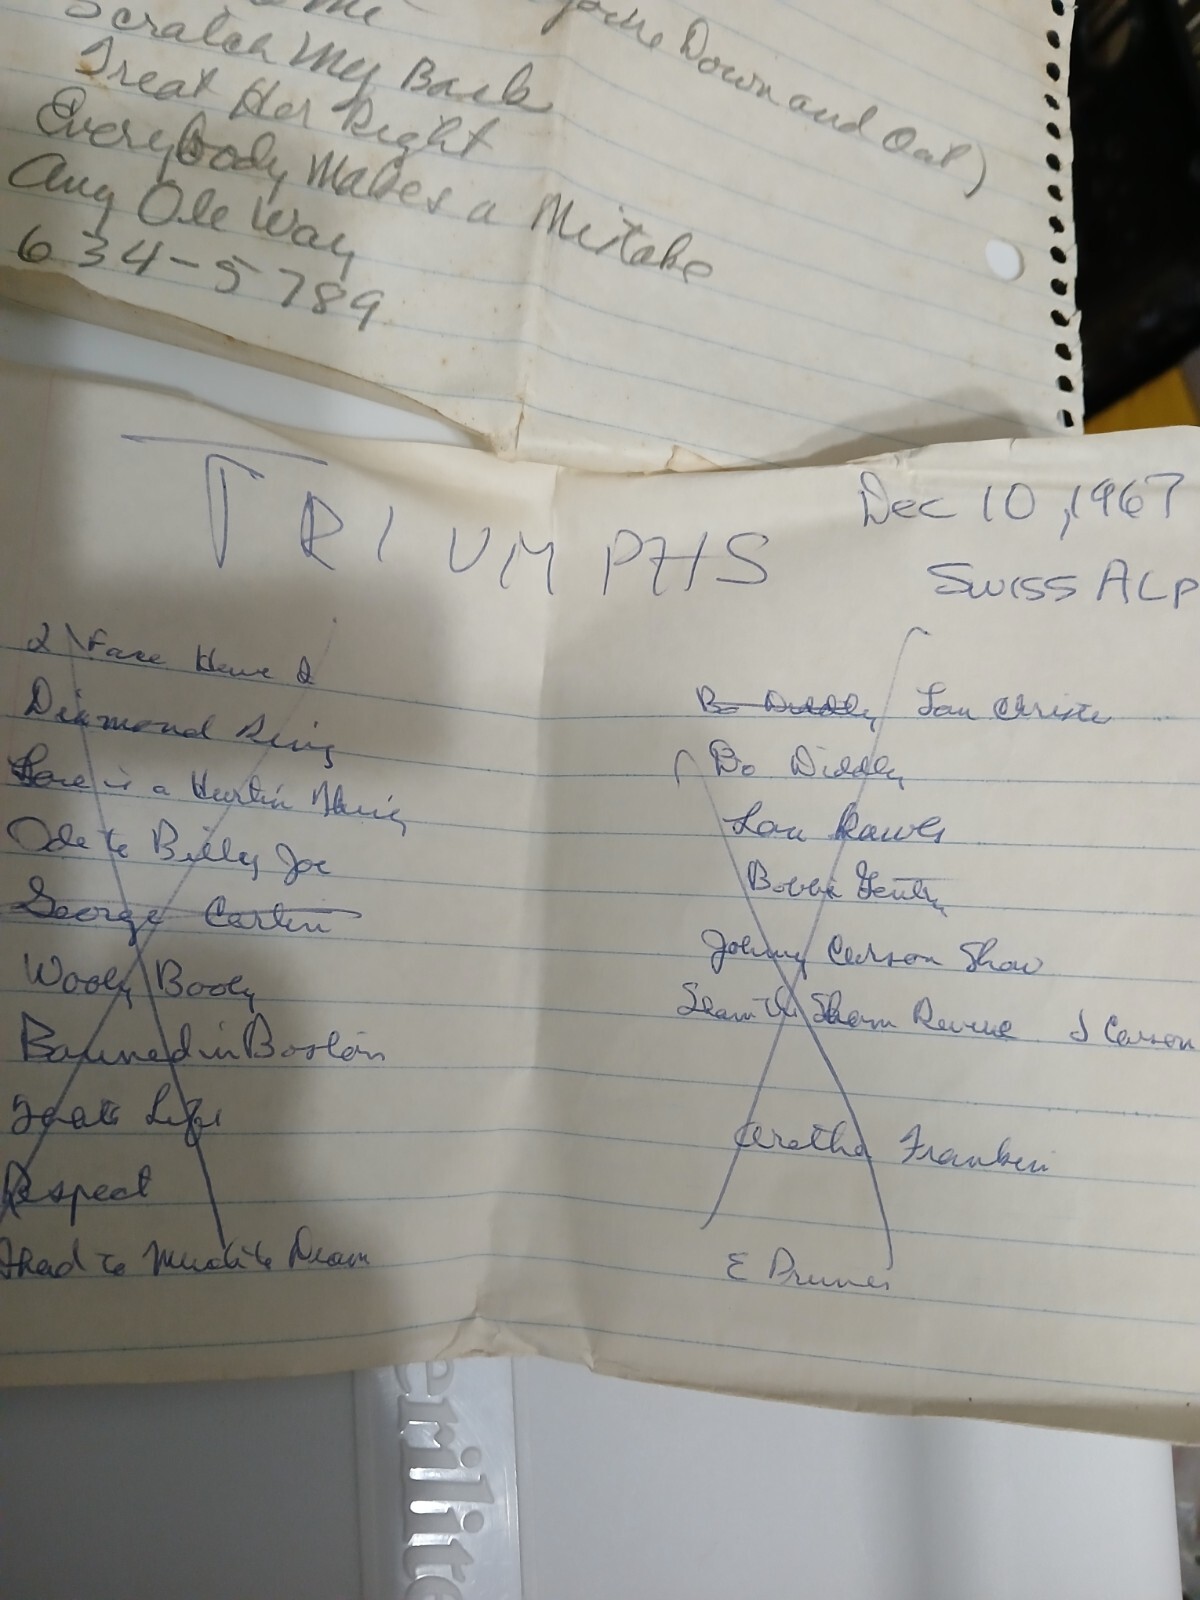 Scratch My Back
Treat Her Right
Everybody Makes a Mistake
Any Ole Way
634-5789
Down and Out)
TRIUMPHS
Dec 10, 1967
SWISS ALP
2 Face Have 2
Diamond Ring
Love is a Hurtin Thing
Ode to Billy Joe
George Carlin
Wooly Booly
Banned in Boston
Life
Respect
to
Bo Diddly Lou Christie
Bo Diddly
Lou Rawls
Bobbi Gentry
Johnny Carson Show
Sam the Sham Revue J Carson
Aretha Franklin
E Prunes
erilite